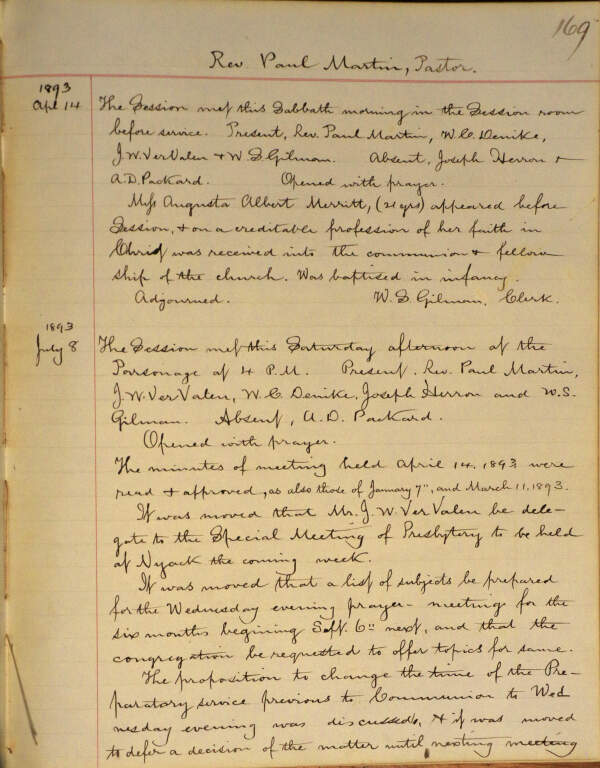 169
Rev. Paul Martin, Pastor.
1893
Apr 14
The Session met this Sabbath morning in the Session room
before service. Present, Rev. Paul Martin, W. C. Denike,
J. W. Ver Valen & W. S. Gilman. Absent, Joseph Herron &
A. D. Packard. Opened with prayer.
Miss Augusta Albert Merritt, (21 yrs) appeared before
Session, & on a creditable profession of her faith in
Christ was received into the communion & fellow
ship of the church. Was baptised in infancy.
Adjourned. W. S. Gilman, Clerk.
1893
July 8
The Session met this Saturday afternoon at the
Parsonage at 4 P.M. Present, Rev. Paul Martin,
J. W. Ver Valen, W. C. Denike, Joseph Herron and W. S.
Gilman. Absent, A. D. Packard.
Opened with prayer.
The minutes of meeting held April 14, 1893 were
read & approved, as also those of January 7", and March 11, 1893.
It was moved that Mr. J. W. Ver Valen be dele-
gate to the Special Meeting of Presbytery to be held
at Nyack the coming week.
It was moved that a list of subjects be prepared
for the Wednesday evening prayer-meeting for the
six months begining Sept. 6" next, and that the
congregation be requested to offer topics for same.
The proposition to change the time of the Pre-
paratory service previous to Communion to Wed
nesday evening was discussed, & it was moved
to defer a decision of the matter until nexting meeting